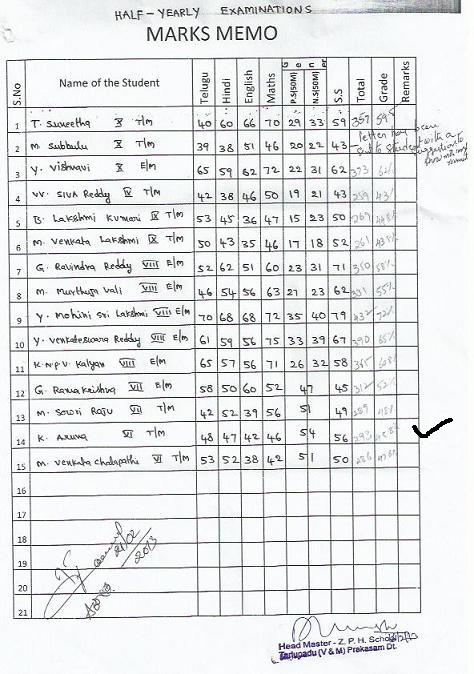 HALF-YEARLY EXAMINATIONS
MARKS MEMO
S.No Name of the Student Telugu Hindi English Maths P.S(50M) N.S(50M) S.S Total Grade Remarks
1 T. Suneetha X T/M 40 60 66 70 29 33 59 357
2 M. Subbulu X T/M 39 38 51 46 20 22 43
3 Y. Vishnavi X E/M 65 59 62 72 22 31 62 373
4 VV. Siva Reddy IX T/M 42 38 46 50 19 21 43 259
5 B. Lakshmi Kumari IX T/M 53 45 36 47 15 23 50 269
6 M. Venkata Lakshmi IX T/M 50 43 35 46 17 18 52 261
7 G. Ravindra Reddy VIII E/M 52 62 51 60 23 31 71 350
8 M. Murthuja Vali VIII E/M 46 54 56 63 27 23 62 331
9 Y. Mohini Sri Lakshmi VIII E/M 70 68 68 72 35 40 79 432
10 Y. Venkateswara Reddy VIII E/M 61 59 56 75 33 39 67 390
11 K.N.P.V. Kalyan VIII E/M 65 57 56 71 26 32 58 365
12 G. Ramakrishna VII E/M 58 50 60 52 47 45 312
13 M. Sowri Raju VII T/M 42 52 39 56 51 49 289
14 K. Aruna VI T/M 48 47 42 46 54 56 293
15 M. Venkata Chalapathi VI T/M 53 52 38 42 51 50 286
16
17
18
19
20
21
21/02
2013
Head Master - Z. P. H. School
Tarlupadu (V & M) Prakasam Dt.